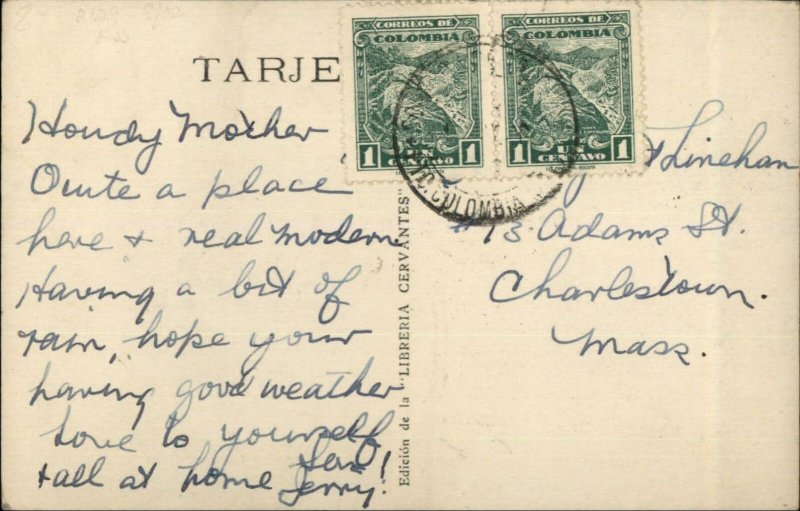 TARJE
CORREOS DE
COLOMBIA
1 UN CENTAVO 1
CORREOS DE
COLOMBIA
1 UN CENTAVO 1
COLOMBIA
Howdy Mother
Quite a place
here + real modern
Having a bit of
rain, hope your
having good weather
love to yourself
+ all at home Son
Jerry!
Edición de la "LIBRERIA CERVANTES"
Linehan
#13 Adams St.
Charlestown.
Mass.